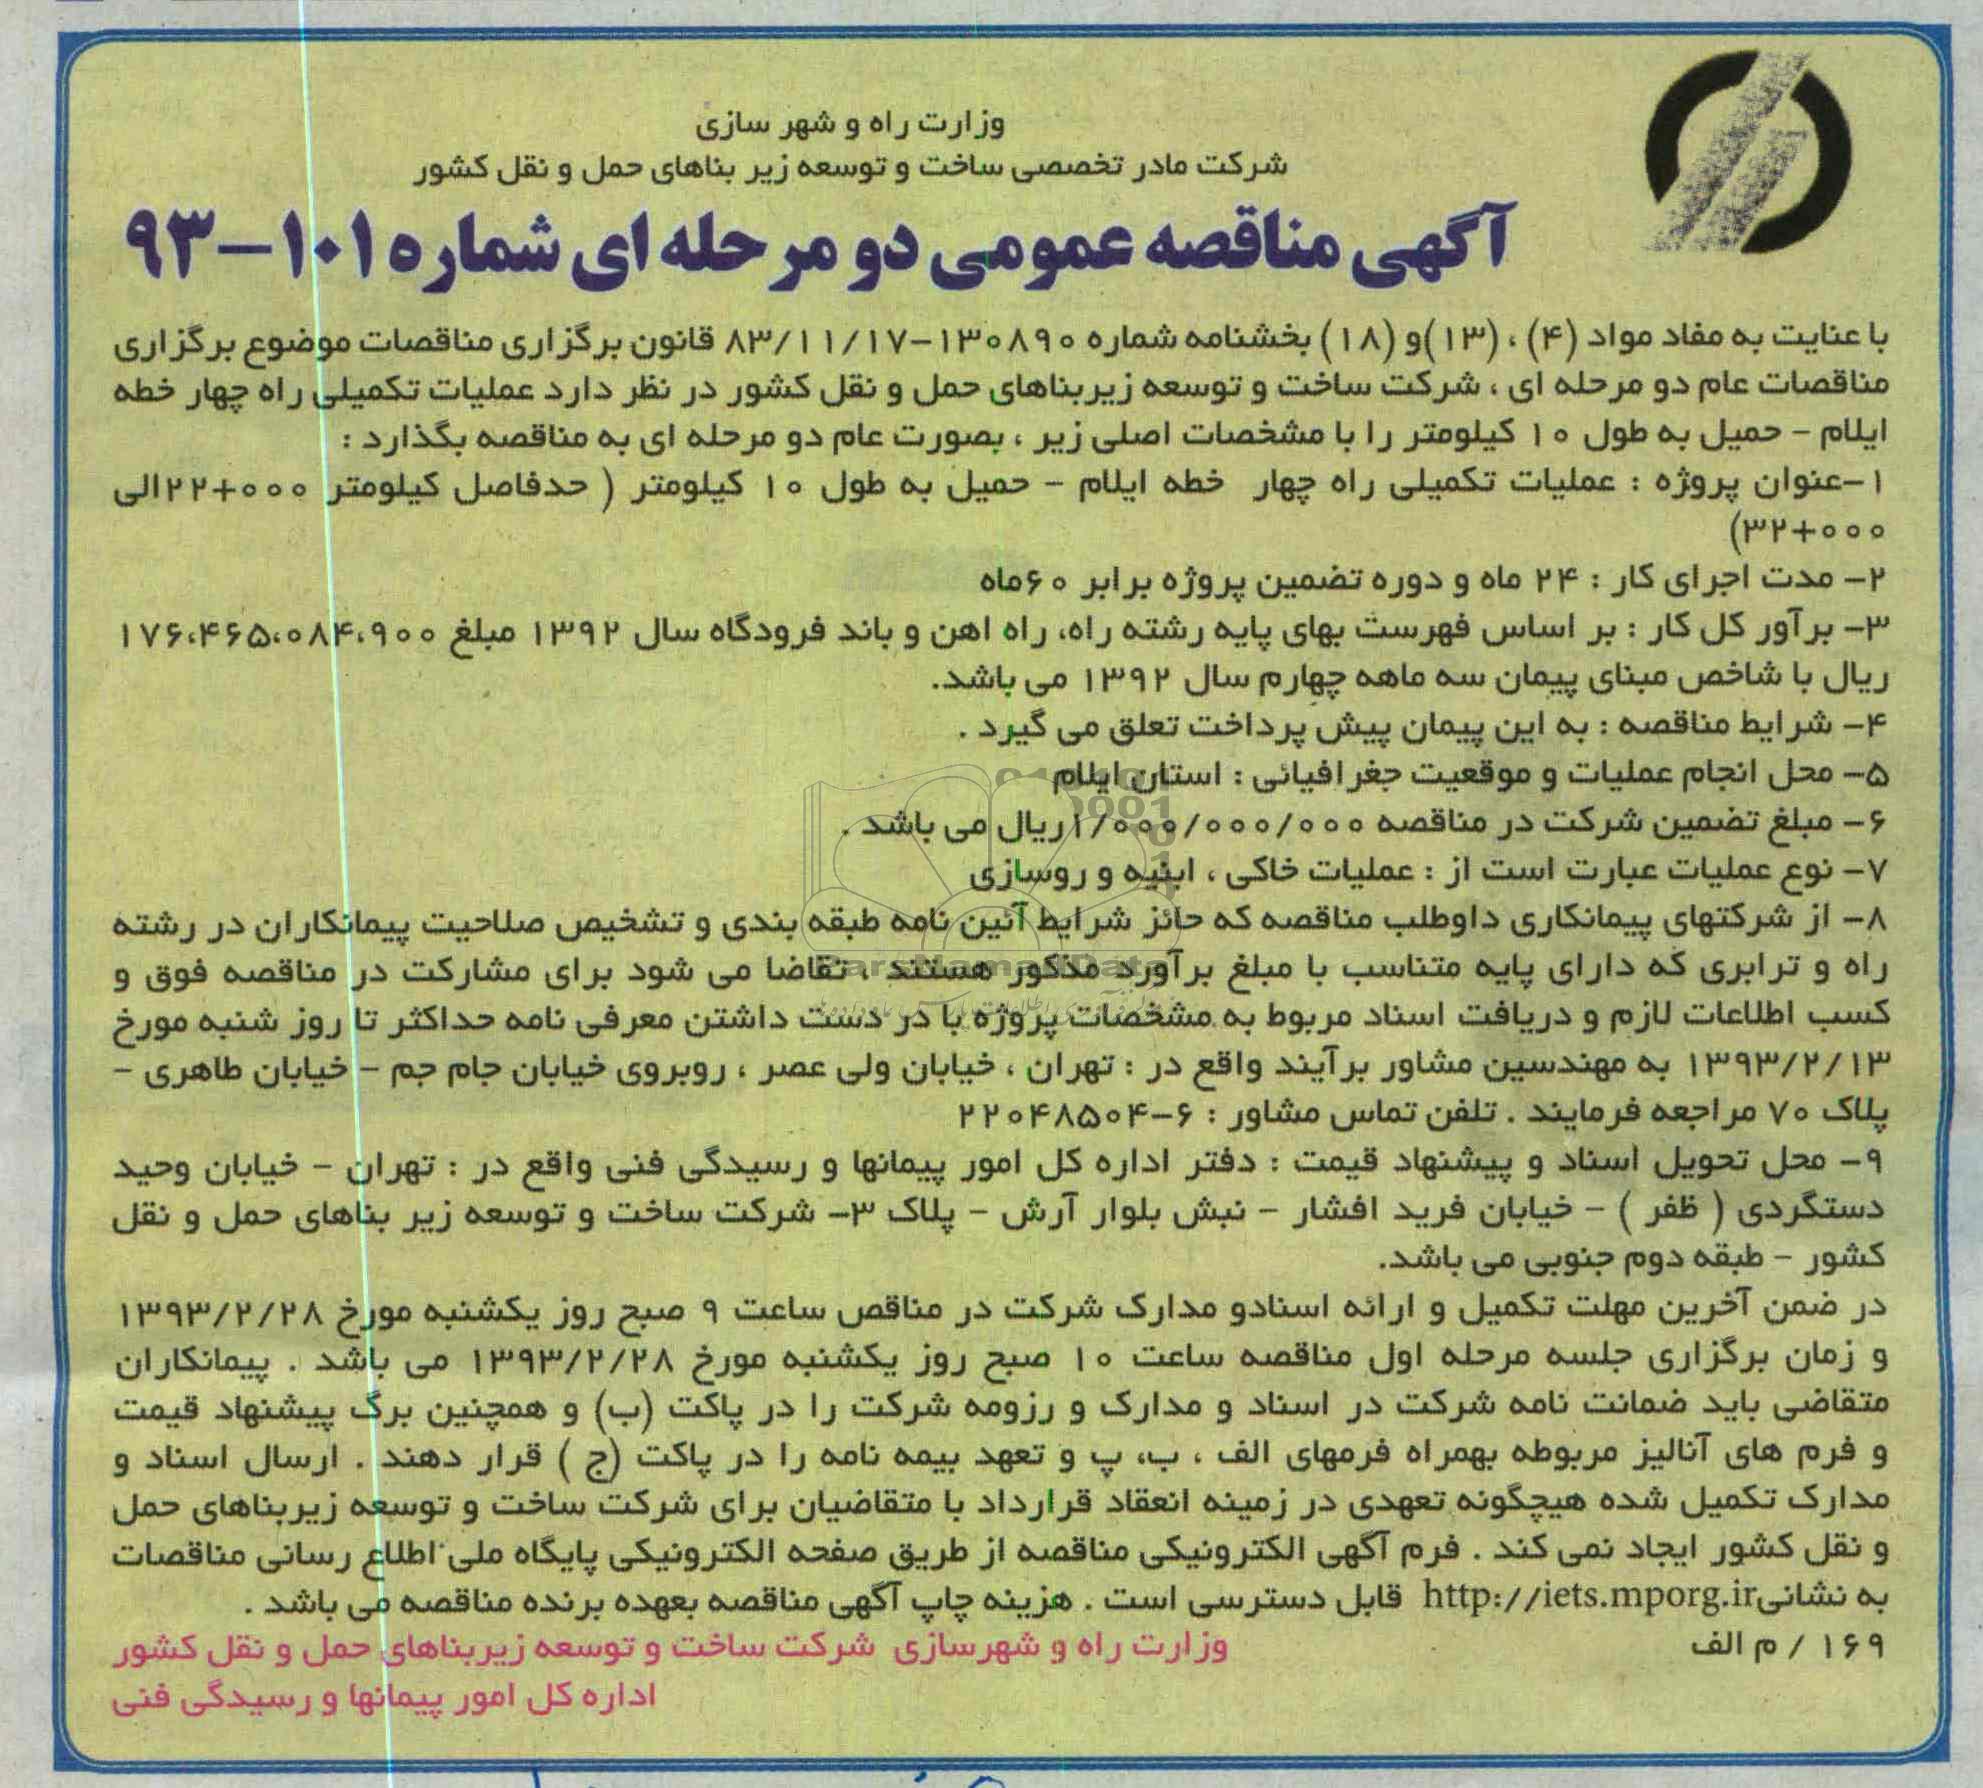 وزارت راه و شهر سازی
شرکت مادر تخصصی ساخت و توسعه زیر بناهای حمل و نقل کشور
آگهی مناقصه عمومی دو مرحله ای شماره ۱۰۱-۹۳
با عنایت به مفاد مواد (۴) ، (۱۳)و (۱۸) بخشنامه شماره ۱۳۰۸۹۰-۸۳/۱۱/۱۷ قانون برگزاری مناقصات موضوع برگزاری
مناقصات عام دو مرحله ای ، شرکت ساخت و توسعه زیربناهای حمل و نقل کشور در نظر دارد عملیات تکمیلی راه چهار خطه
ایلام - حمیل به طول ۱۰ کیلومتر را با مشخصات اصلی زیر ، بصورت عام دو مرحله ای به مناقصه بگذارد :
۱-عنوان پروژه : عملیات تکمیلی راه چهار خطه ایلام - حمیل به طول ۱۰ کیلومتر ( حدفاصل کیلومتر ۰۰۰+۲۲الی
۰۰۰+۳۲)
۲- مدت اجرای کار : ۲۴ ماه و دوره تضمین پروژه برابر ۶۰ماه
۳- برآور کل کار : بر اساس فهرست بهای پایه رشته راه، راه اهن و باند فرودگاه سال ۱۳۹۲ مبلغ ۱۷۶،۴۶۵،۰۸۴،۹۰۰
ریال با شاخص مبنای پیمان سه ماهه چهارم سال ۱۳۹۲ می باشد.
۴- شرایط مناقصه : به این پیمان پیش پرداخت تعلق می گیرد .
۵- محل انجام عملیات و موقعیت جغرافیائی : استان ایلام
۶- مبلغ تضمین شرکت در مناقصه ۱/۰۰۰/۰۰۰/۰۰۰ریال می باشد .
۷- نوع عملیات عبارت است از : عملیات خاکی ، ابنیه و روسازی
۸- از شرکتهای پیمانکاری داوطلب مناقصه که حائز شرایط آئین نامه طبقه بندی و تشخیص صلاحیت پیمانکاران در رشته
راه و ترابری که دارای پایه متناسب با مبلغ برآورد مذکور هستند ، تقاضا می شود برای مشارکت در مناقصه فوق و
کسب اطلاعات لازم و دریافت اسناد مربوط به مشخصات پروژه با در دست داشتن معرفی نامه حداکثر تا روز شنبه مورخ
۱۳۹۳/۲/۱۳ به مهندسین مشاور برآیند واقع در : تهران ، خیابان ولی عصر ، روبروی خیابان جام جم - خیابان طاهری -
پلاک ۷۰ مراجعه فرمایند . تلفن تماس مشاور : ۶-۲۲۰۴۸۵۰۴
۹- محل تحویل اسناد و پیشنهاد قیمت : دفتر اداره کل امور پیمانها و رسیدگی فنی واقع در : تهران - خیابان وحید
دستگردی ( ظفر ) - خیابان فرید افشار - نبش بلوار آرش - پلاک ۳- شرکت ساخت و توسعه زیر بناهای حمل و نقل
کشور - طبقه دوم جنوبی می باشد.
در ضمن آخرین مهلت تکمیل و ارائه اسنادو مدارک شرکت در مناقص ساعت ۹ صبح روز یکشنبه مورخ ۱۳۹۳/۲/۲۸
و زمان برگزاری جلسه مرحله اول مناقصه ساعت ۱۰ صبح روز یکشنبه مورخ ۱۳۹۳/۲/۲۸ می باشد . پیمانکاران
متقاضی باید ضمانت نامه شرکت در اسناد و مدارک و رزومه شرکت را در پاکت (ب) و همچنین برگ پیشنهاد قیمت
و فرم های آنالیز مربوطه بهمراه فرمهای الف ، ب، پ و تعهد بیمه نامه را در پاکت (ج ) قرار دهند . ارسال اسناد و
مدارک تکمیل شده هیچگونه تعهدی در زمینه انعقاد قرارداد با متقاضیان برای شرکت ساخت و توسعه زیربناهای حمل
و نقل کشور ایجاد نمی کند . فرم آگهی الکترونیکی مناقصه از طریق صفحه الکترونیکی پایگاه ملی اطلاع رسانی مناقصات
به نشانیhttp://iets.mporg.ir قابل دسترسی است . هزینه چاپ آگهی مناقصه بعهده برنده مناقصه می باشد .
۱۶۹ / م الف
وزارت راه و شهرسازی شرکت ساخت و توسعه زیربناهای حمل و نقل کشور
اداره کل امور پیمانها و رسیدگی فنی